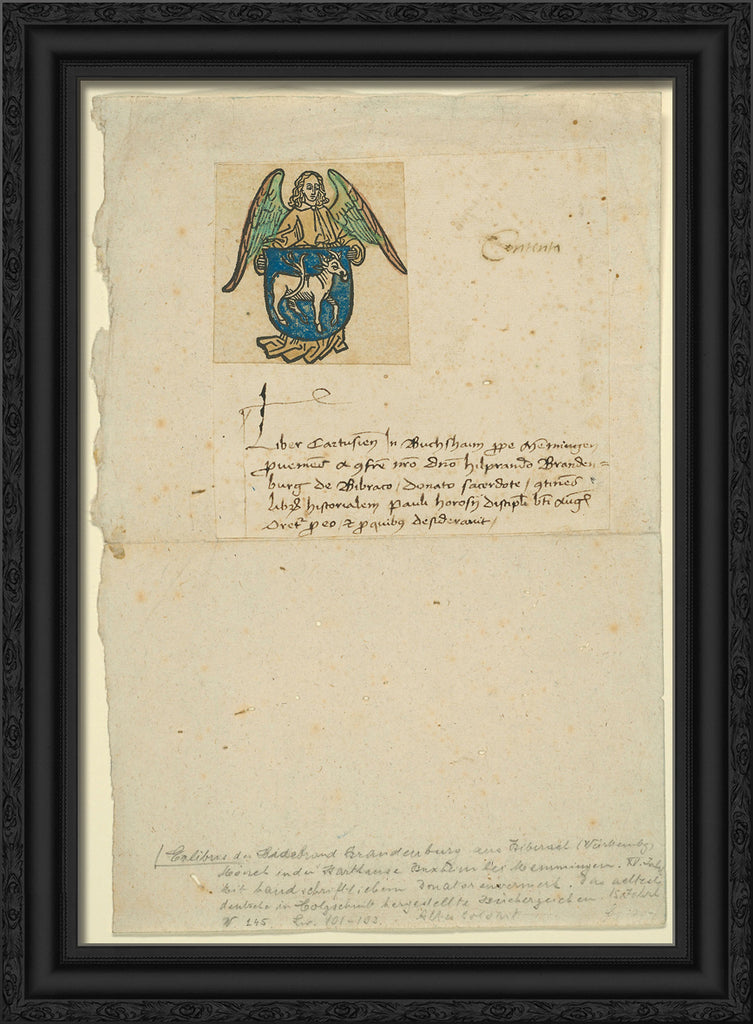 Contenta
Liber Cartusien̄ In Buchshaim ꝓpe Me̅mingen
ꝓuenie̅s a ꝯfr̄e nr̄o dn̄o hilprando Branden=
burg de Bibraco / donato sacerdote / ꝯtine̅s
libr̄ historialem pauli horosij discipl̄i bt̄i Auḡ
Oret̄ ꝓ eo / et ꝓ quibus desiderauit /
Exlibris des Hildebrand Brandenburg aus Biberach (Württembg)
Mönch in der Karthause Buxheim bei Memmingen. XV. Jahr
Mit handschriftlichem Donatorenvermerk. Das aelteste
deutsche in Holzschnitt hergestellte Buecherzeichen.
W 145 101-102